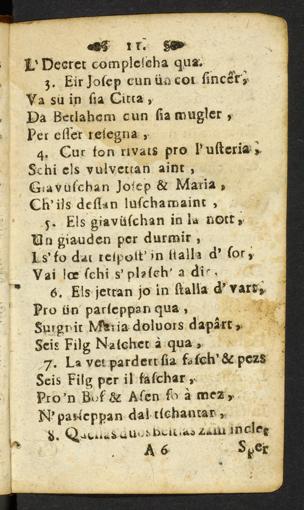 11.
L'Decret complescha qua.
3. Eir Josep cun ün cor sincêr,
Va sü in sia Citta,
Da Betlahem cun sia mugler,
Per esser resegna,
4. Cur son rivats pro l'usteria,
Schi els vulvettan aint,
Giavüschan Josep & Maria,
Ch'ils dessan luschamaint,
5. Els giavüschan in la nott,
Un giauden per durmir,
Ls'fo dat respost' in stalla d' sor,
Vai lœ schi s'plasch' a dir,
6. Els jettan jo in stalla d' vart,
Pro ün parseppan qua,
Surgnit Maria doluors dapârt,
Seis Filg Naschet à qua,
7. La vet pardert sia fasch' & pezs
Seis Filg per il faschar,
Pro'n Bof & Asen fo à mez,
N'parseppan dal tschantar,
8. Quellas duos Bestias zain incler
A 6 Sper